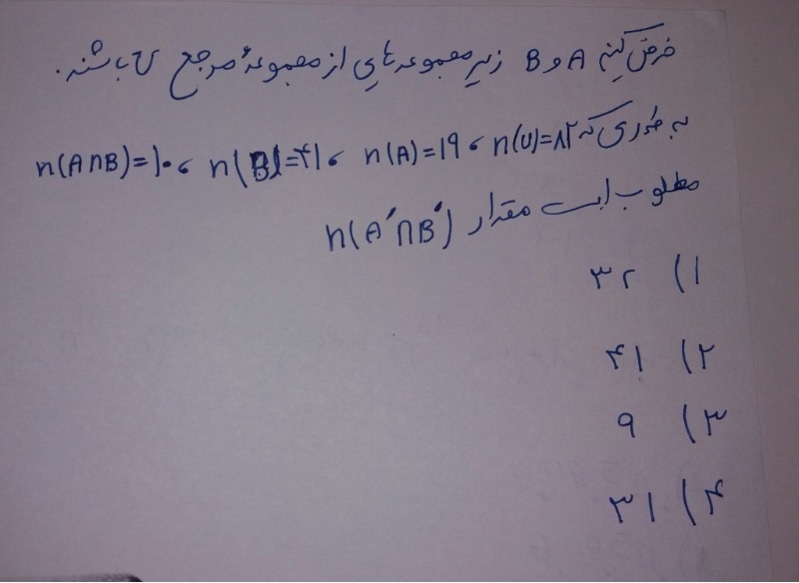 فرض کنیم A و B زیرمجموعه‌هایی از مجموعهٔ مرجع U باشند.
به طوری که n(U)=۸۲ ، n(A)=۱۹ ، n(B)=۴۱ ، n(A∩B)=۱۰
مطلوب است مقدار n(A′∩B′)
۱) ۳۲
۲) ۴۱
۳) ۹
۴) ۳۱